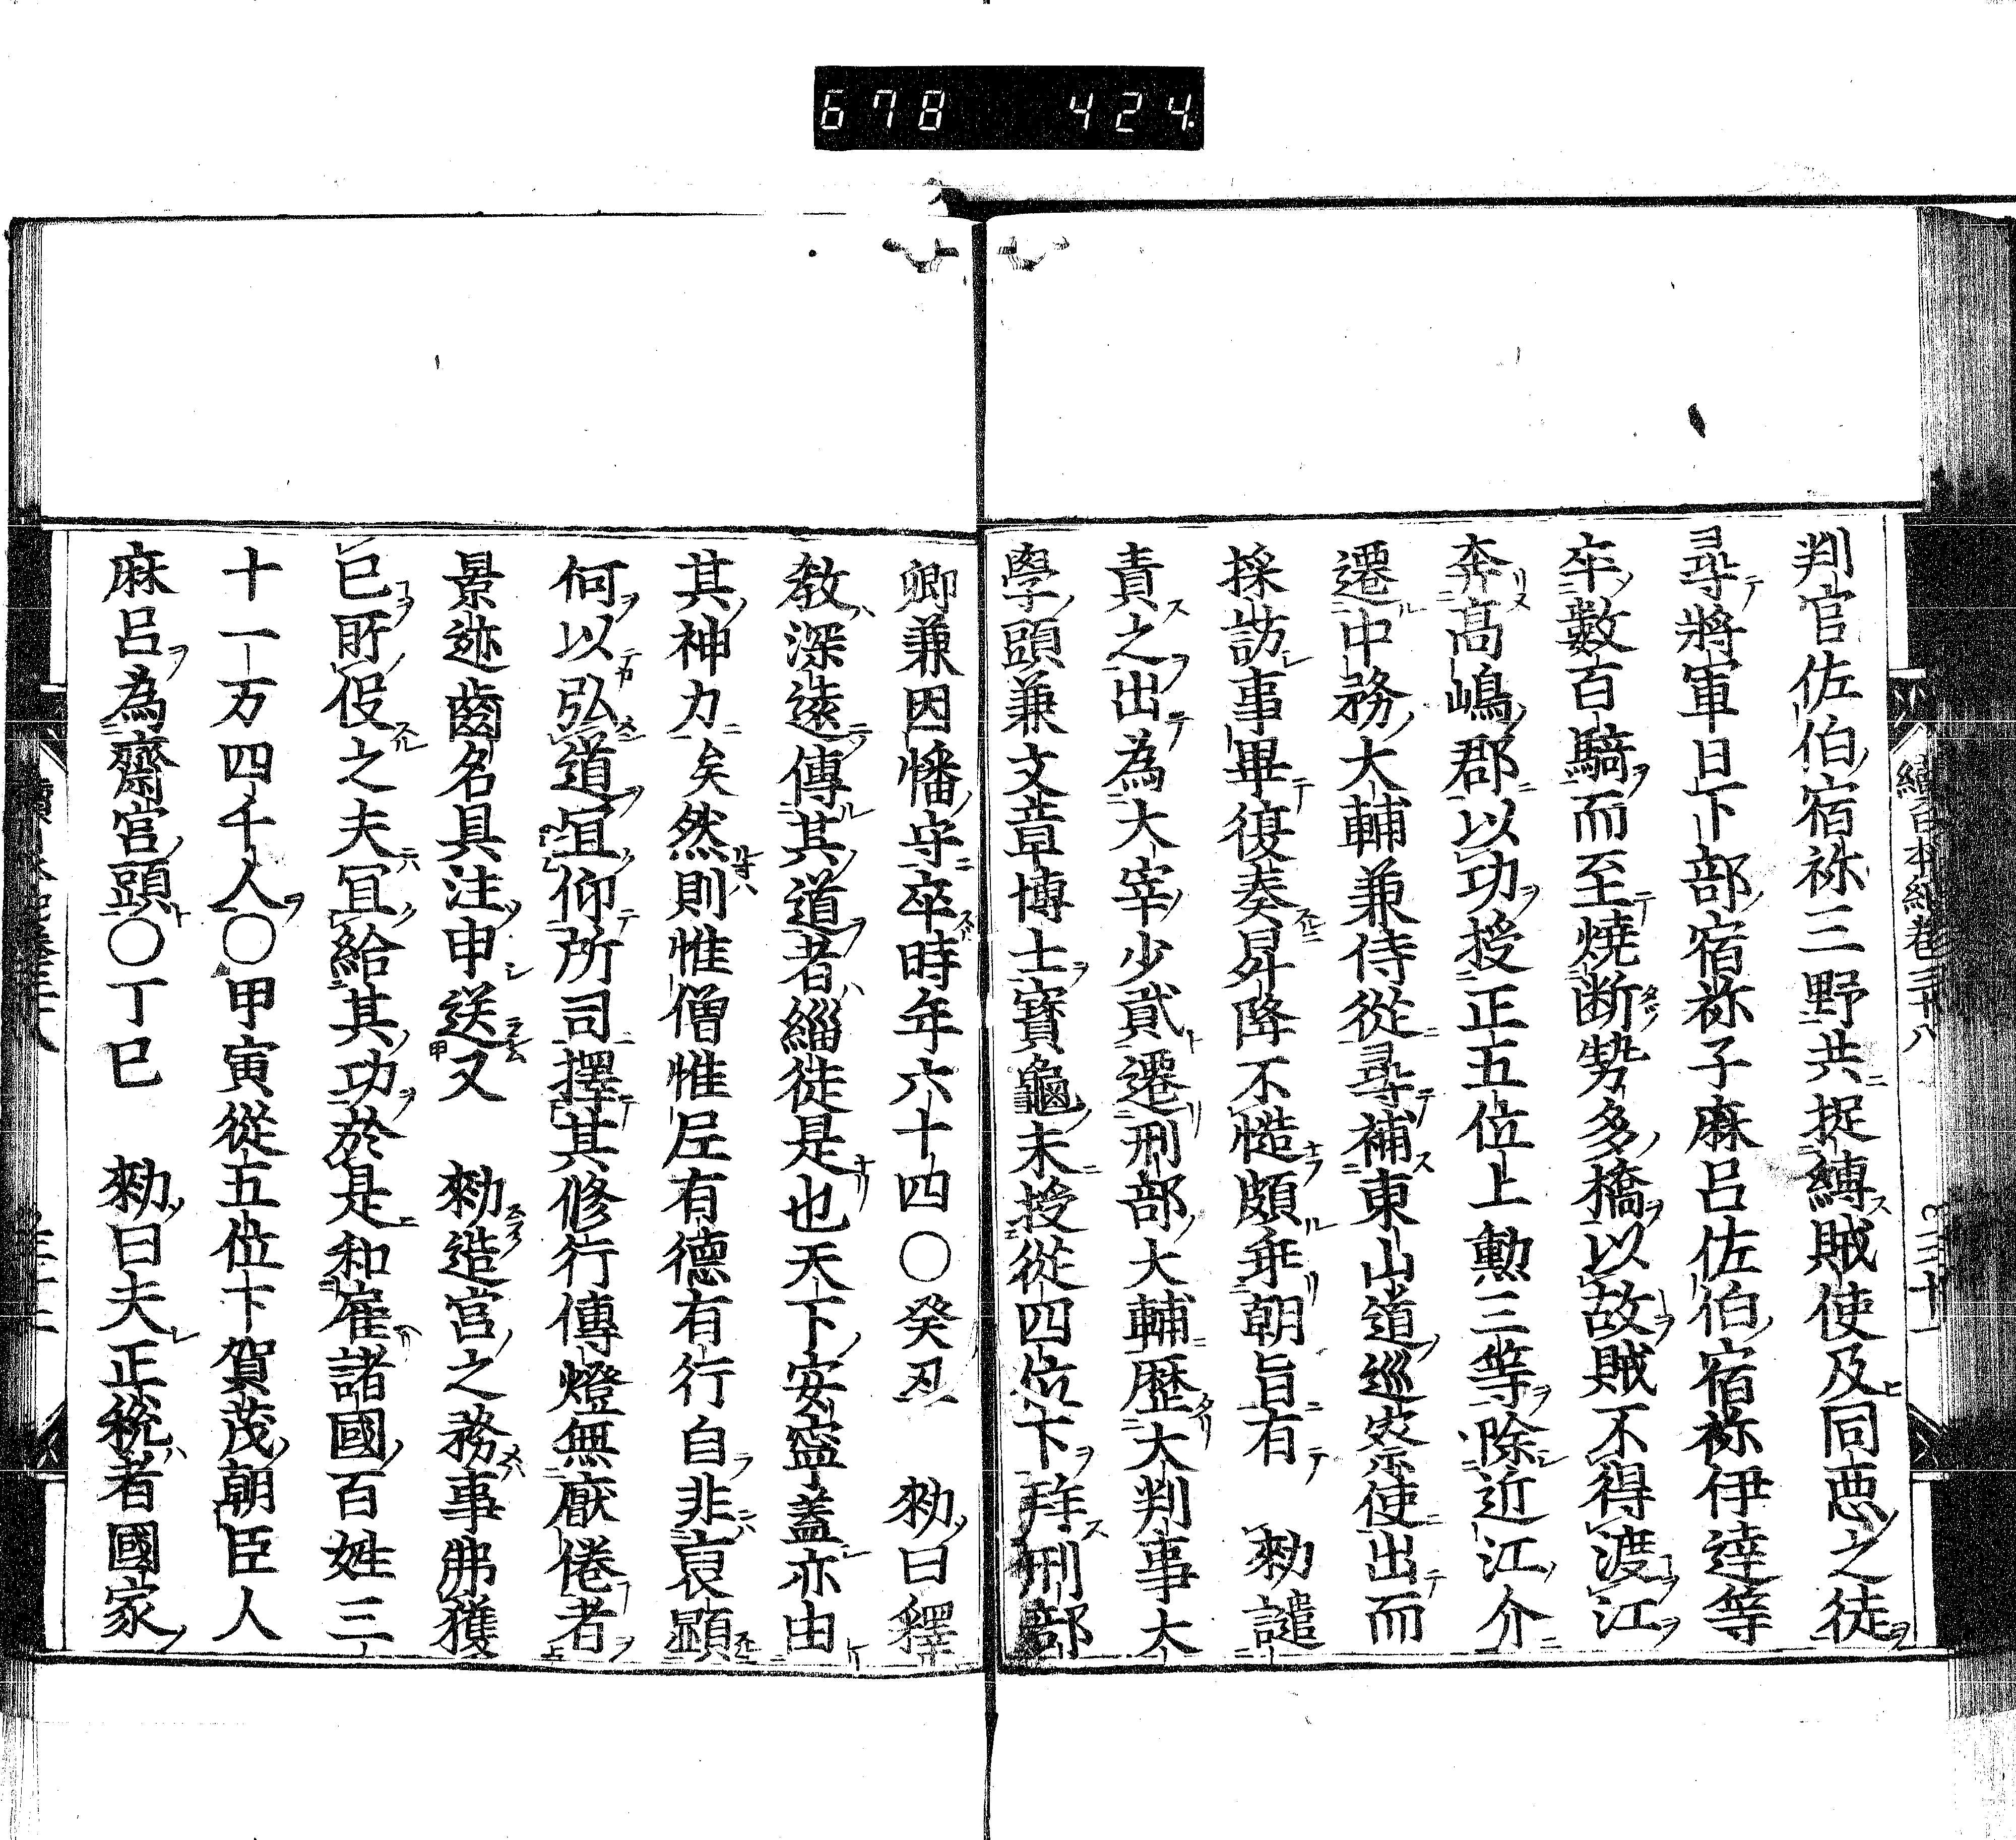 678 424
續日本紀卷三十八
三十一
判官佐伯宿祢三野共捉縛賊使及同悪之徒
尋將軍日下部宿祢子麻呂佐伯宿祢伊達等
卒數百騎而至燒断勢多橋以故賊不得渡江
奔高嶋郡以功授正五位上勲三等除近江介
遷中務大輔兼侍從尋補東山道巡察使出而
採訪事畢復奏昇降不慥頗乖朝旨有 勑譴
責之出為大宰少貳遷刑部大輔歴大判事大
學頭兼文章博士寳龜末授從四位下拜刑部
卿兼因幡守卒時年六十四〇癸丑 勑曰釋
教深遠傳其道者緇徒是也天下安寧蓋亦由
其神力矣然則惟僧惟尼有德有行自非哀顕
何以弘道冝仰所司擇其修行傳燈無厭倦者
景迹齒名具注申送又 勑造宮之務事弗獲
已所役之夫冝給其功於是和雇諸國百姓三
十一万四千人〇甲寅從五位下賀茂朝臣人
麻呂為齋宮頭〇丁巳 勑曰夫正稅者國家
三十二